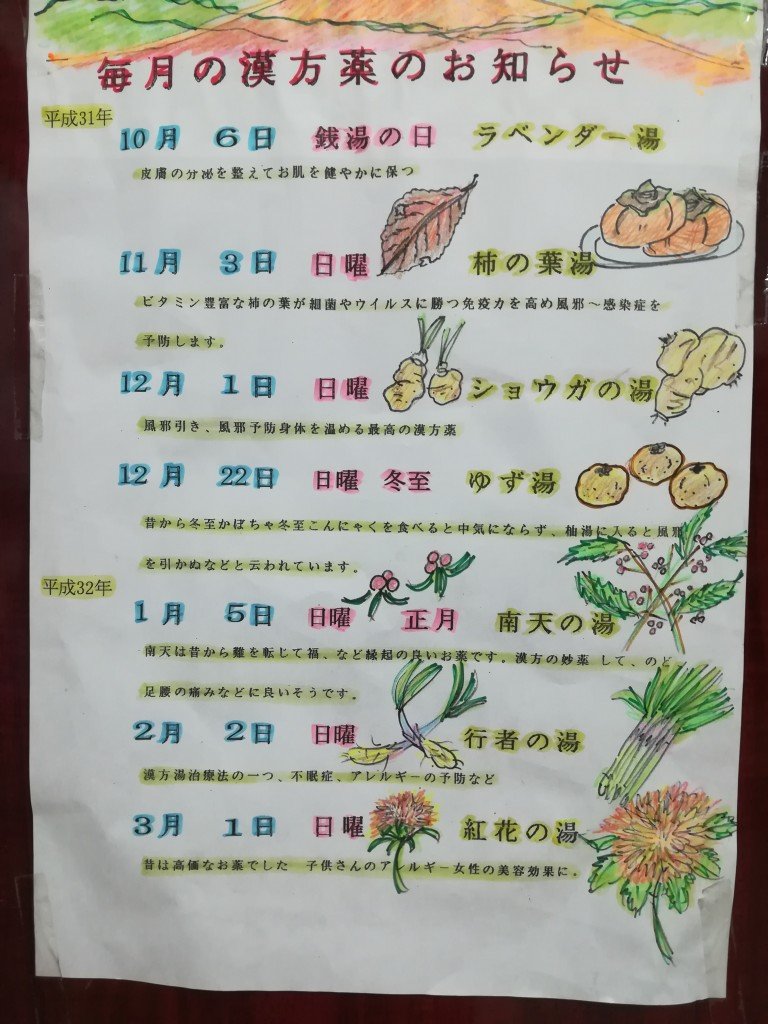 毎月の漢方薬のお知らせ
平成31年
10月 6日 銭湯の日 ラベンダー湯
皮膚の分泌を整えてお肌を健やかに保つ
11月 3日 日曜 柿の葉湯
ビタミン豊富な柿の葉が細菌やウイルスに勝つ免疫力を高め風邪～感染症を
予防します。
12月 1日 日曜 ショウガの湯
風邪引き、風邪予防身体を温める最高の漢方薬
12月 22日 日曜 冬至 ゆず湯
昔から冬至かぼちゃ冬至こんにゃくを食べると中気にならず、柚湯に入ると風邪
を引かぬなどと云われています。
平成32年
1月 5日 日曜 正月 南天の湯
南天は昔から難を転じて福、など縁起の良いお薬です。漢方の妙薬 して、のど、
足腰の痛みなどに良いそうです。
2月 2日 日曜 行者の湯
漢方湯治療法の一つ、不眠症、アレルギーの予防など
3月 1日 日曜 紅花の湯
昔は高価なお薬でした 子供さんのアレルギー女性の美容効果に。